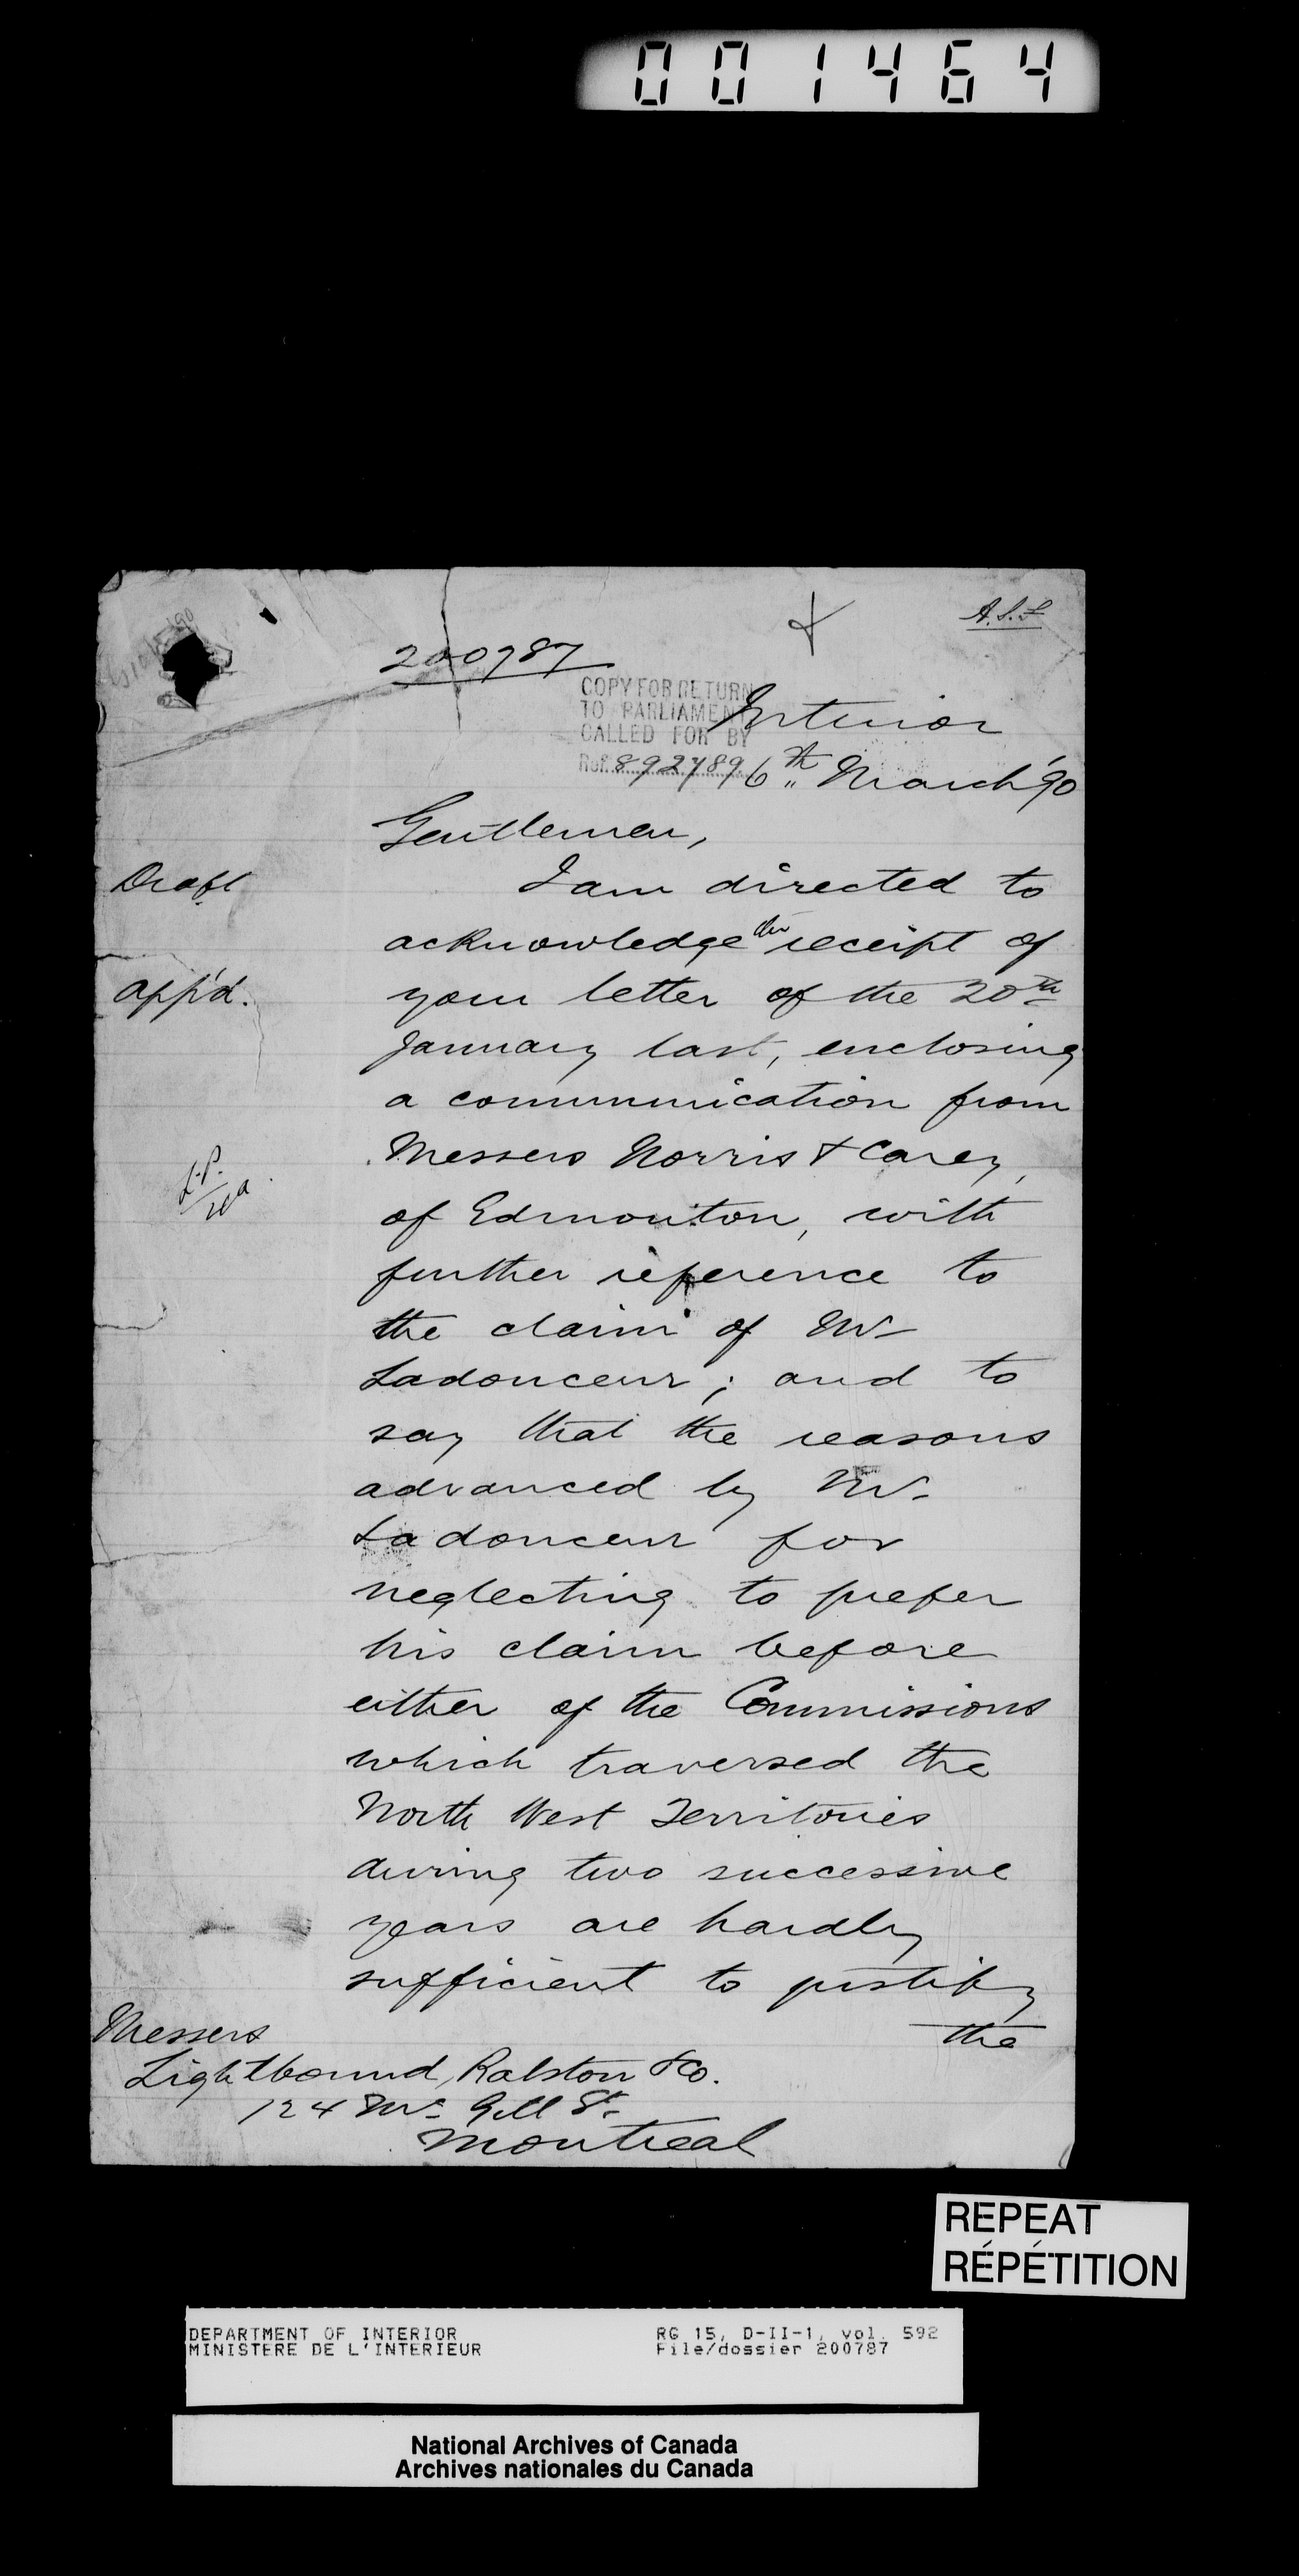 001464
A.S.F
200787
COPY FOR RETURN
TO PARLIAMENT
CALLED FOR BY
Ref. 892789
Interior
6th March '90
Gentlemen,
Draft
I am directed to
acknowledge the receipt of
app'd.
your letter of the 20th
January last, enclosing
a communication from
Messers Norris & Carey,
of Edmonton, with
further reference to
the claim of Mr
Ladouceur; and to
say that the reasons
advanced by Mr.
Ladouceur for
neglecting to prefer
his claim before
either of the Commissions
which traversed the
North West Territories
during two successive
years are hardly
sufficient to justify
the
Messers
Lightbound, Ralston & Co.
124 Mc Gill St.
Montreal
REPEAT
RÉPÉTITION
DEPARTMENT OF INTERIOR
MINISTERE DE L'INTERIEUR
RG 15, D-II-1, vol. 592
File/dossier 200787
National Archives of Canada
Archives nationales du Canada